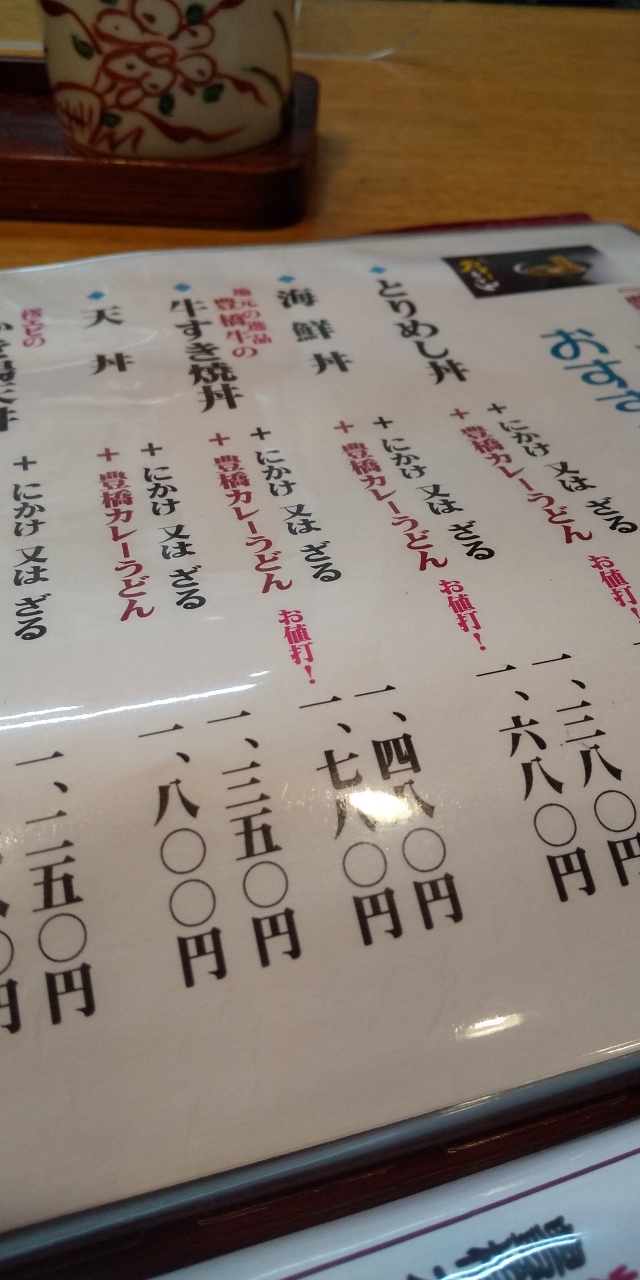 おすす
とりめし丼
+ にかけ 又は ざる
+ 豊橋カレーうどん お値打!
海鮮丼
+ にかけ 又は ざる 一、三八〇円
+ 豊橋カレーうどん お値打! 一、六八〇円
地元の逸品
豊橋牛の
牛すき焼丼
+ にかけ 又は ざる 一、四八〇円
+ 豊橋カレーうどん お値打! 一、七八〇円
天丼
+ にかけ 又は ざる 一、三五〇円
+ 豊橋カレーうどん 一、八〇〇円
+ にかけ 又は ざる 一、二五〇円